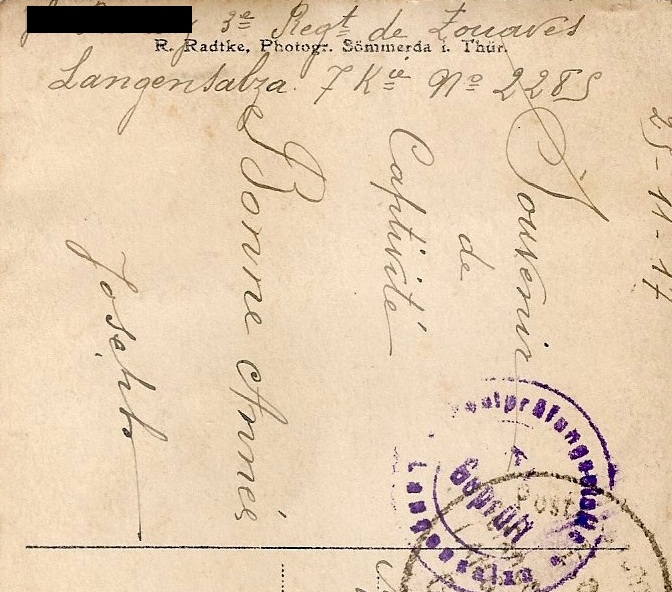 3e Regt de Zouaves
R. Radtke, Photogr. Sömmerda i. Thür.
Langensalza. 7 Kie No 2285
25-11-17
Souvenir
de
Captivité
Bonne Année
Joseph
Postprüfungsstelle
Geprüft
Langensalza
Post